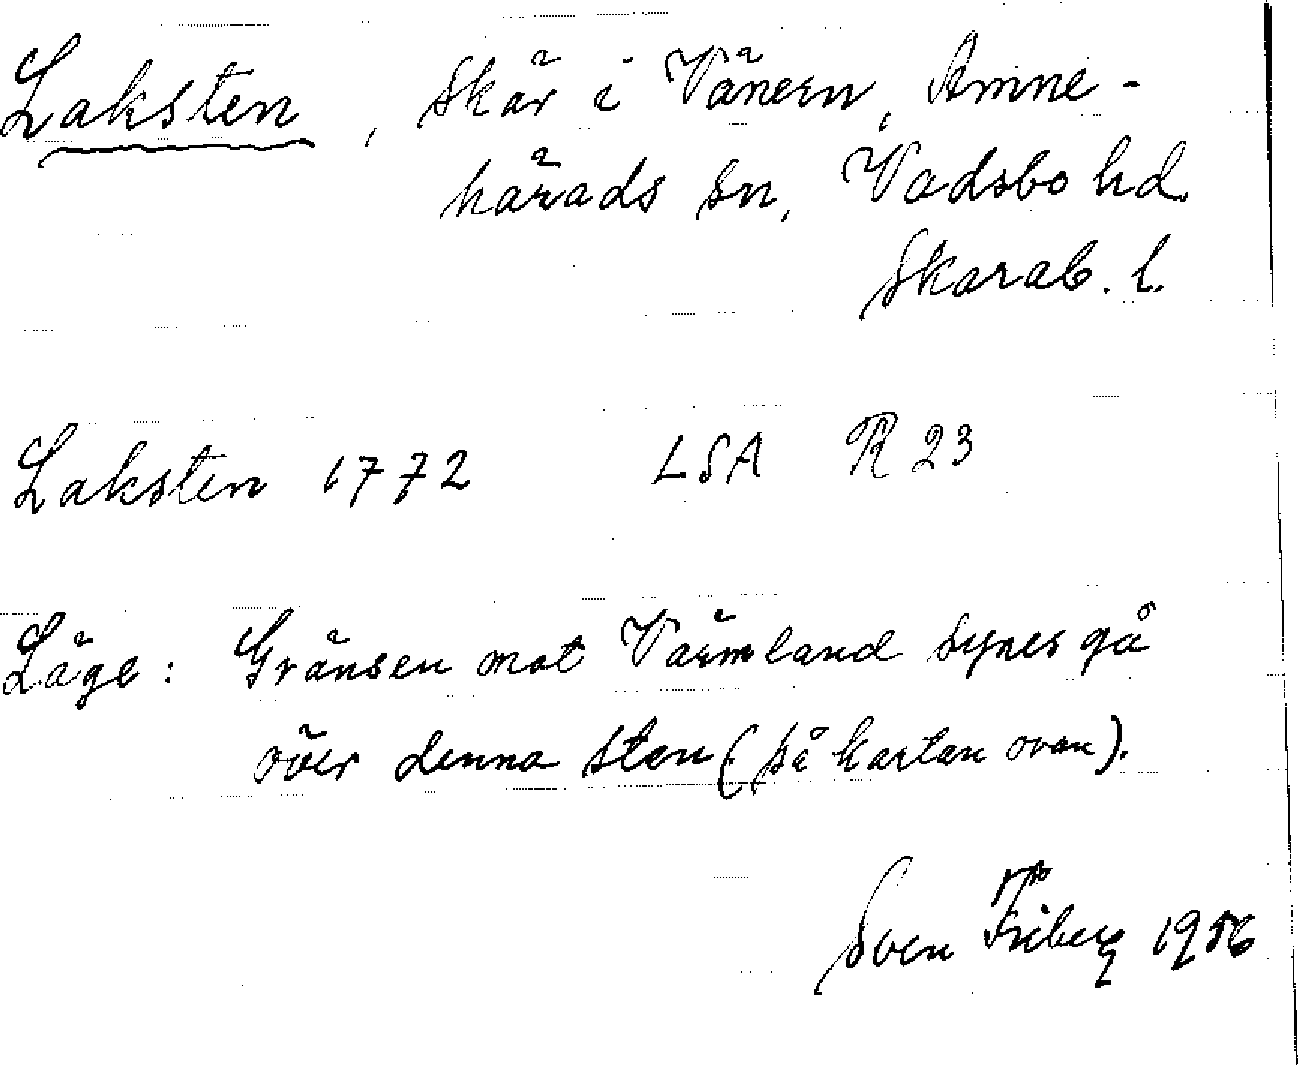 Laksten, skär i Vänern, Amne-
härads sn, Vadsbo hd
Skarab. l.
Laksten 1772 LSA R 23
Läge: Gränsen mot Värmland synes gå
över denna sten (på kartan ovan).
Sven Friberg 1956